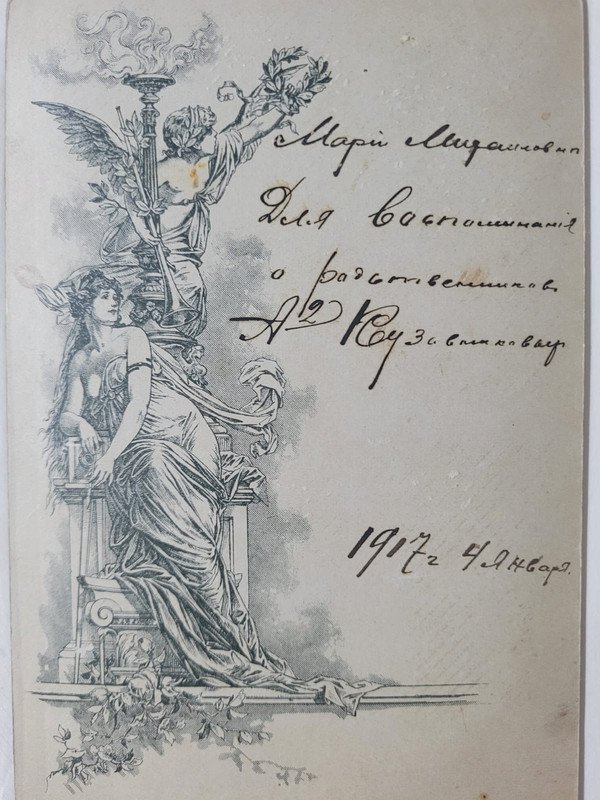 Маріи Михаиловнѣ
Для воспоминанія
о родственников
А Кузовниковых
1917 г 4 Января.